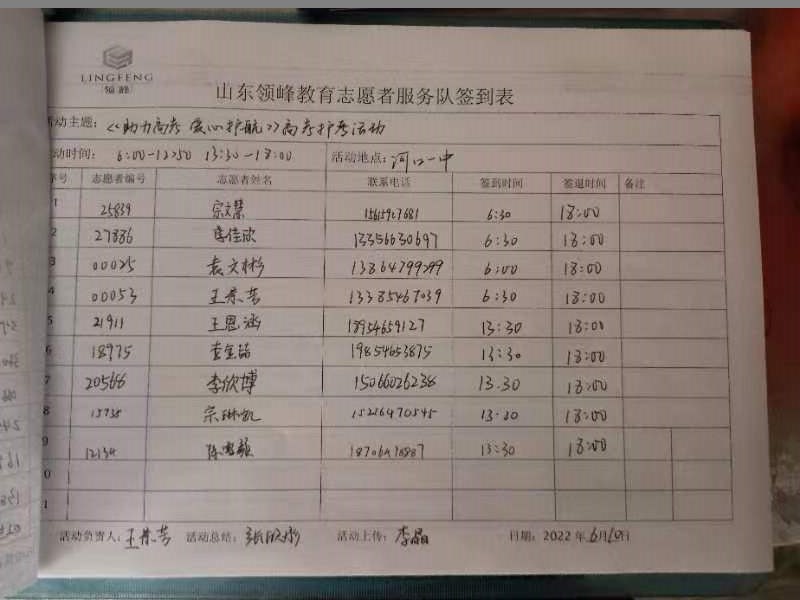 LINGFENG
领峰
山东领峰教育志愿者服务队签到表
活动主题：《助力高考 爱心护航》高考护考活动
动时间： 6:00-12:50 13:30-18:00 活动地点：河口一中
序号 志愿者编号 志愿者姓名 联系电话 签到时间 签退时间 备注
1 25839 宗文慧 6:30 18:00
2 27886 李佳欣 13356630697 6:30 18:00
3 00025 袁文彬 13864799299 6:00 18:00
4 00053 王荣芳 13385467039 6:30 18:00
5 21911 王恩涵 18954659127 13:30 18:00
6 18975 19854653875 13:30 18:00
7 20568 李欣博 15066026238 13.30 18:00
8 宗琳凯 15216470545 18:00
9 13:30 18:00
0
1
活动负责人：王荣芳 活动总结： 活动上传：李晶 日期：2022年6月10日